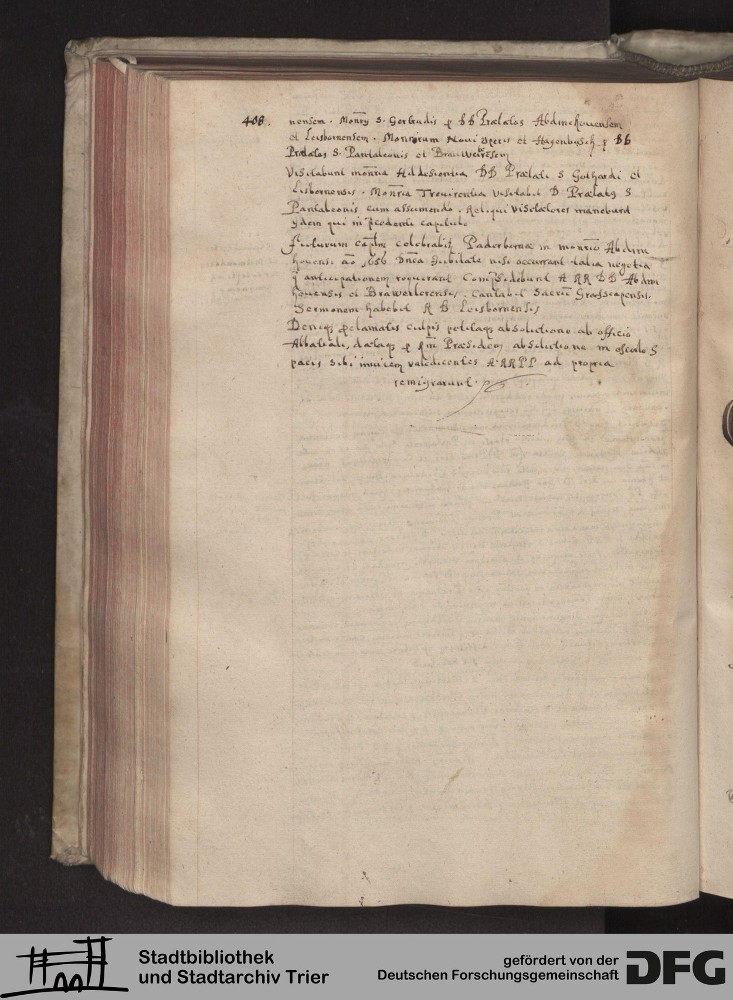 408.
nensem. Monrÿ S. Gertrudis p DD Prælatos Abdinchouensem
et Leisbornensem. Monriorum Noui Operis et Hugenbusch p DD
Prælatos S. Pantaleonis et Brauwelresem
Visitabunt monria Hildesiontia DD Prælati S Gothardi et
Lisbornensis. Monria Trevirentia Visitabit D Prælatus S
Pantaleonis cum assumendo. Reliqui Visitatores manebunt
ÿdem qui in præcedenti capitulo
Futurum captm celebrabit Paderbornæ in monrio Abdin
houensi ao 1656 Dnca Jubilate nisi occurrant talia negotia
q anticipationem requirant Compsidebunt A RR DD Abdin
houensis et Brawerlerensis. Cantabit Sacrū Grafscapensis.
Sermonem habebit R D Leisbornensis
Deniq pclamatis culpis petitaq absolutione ab officio
Abbatiali, dataq p Præsidem absolutione in osculo S
pacis sibi inuicem valedicentes A.RRPP ad propria
remigrarunt.
Stadtbibliothek
und Stadtarchiv Trier
gefördert von der
Deutschen Forschungsgemeinschaft
DFG